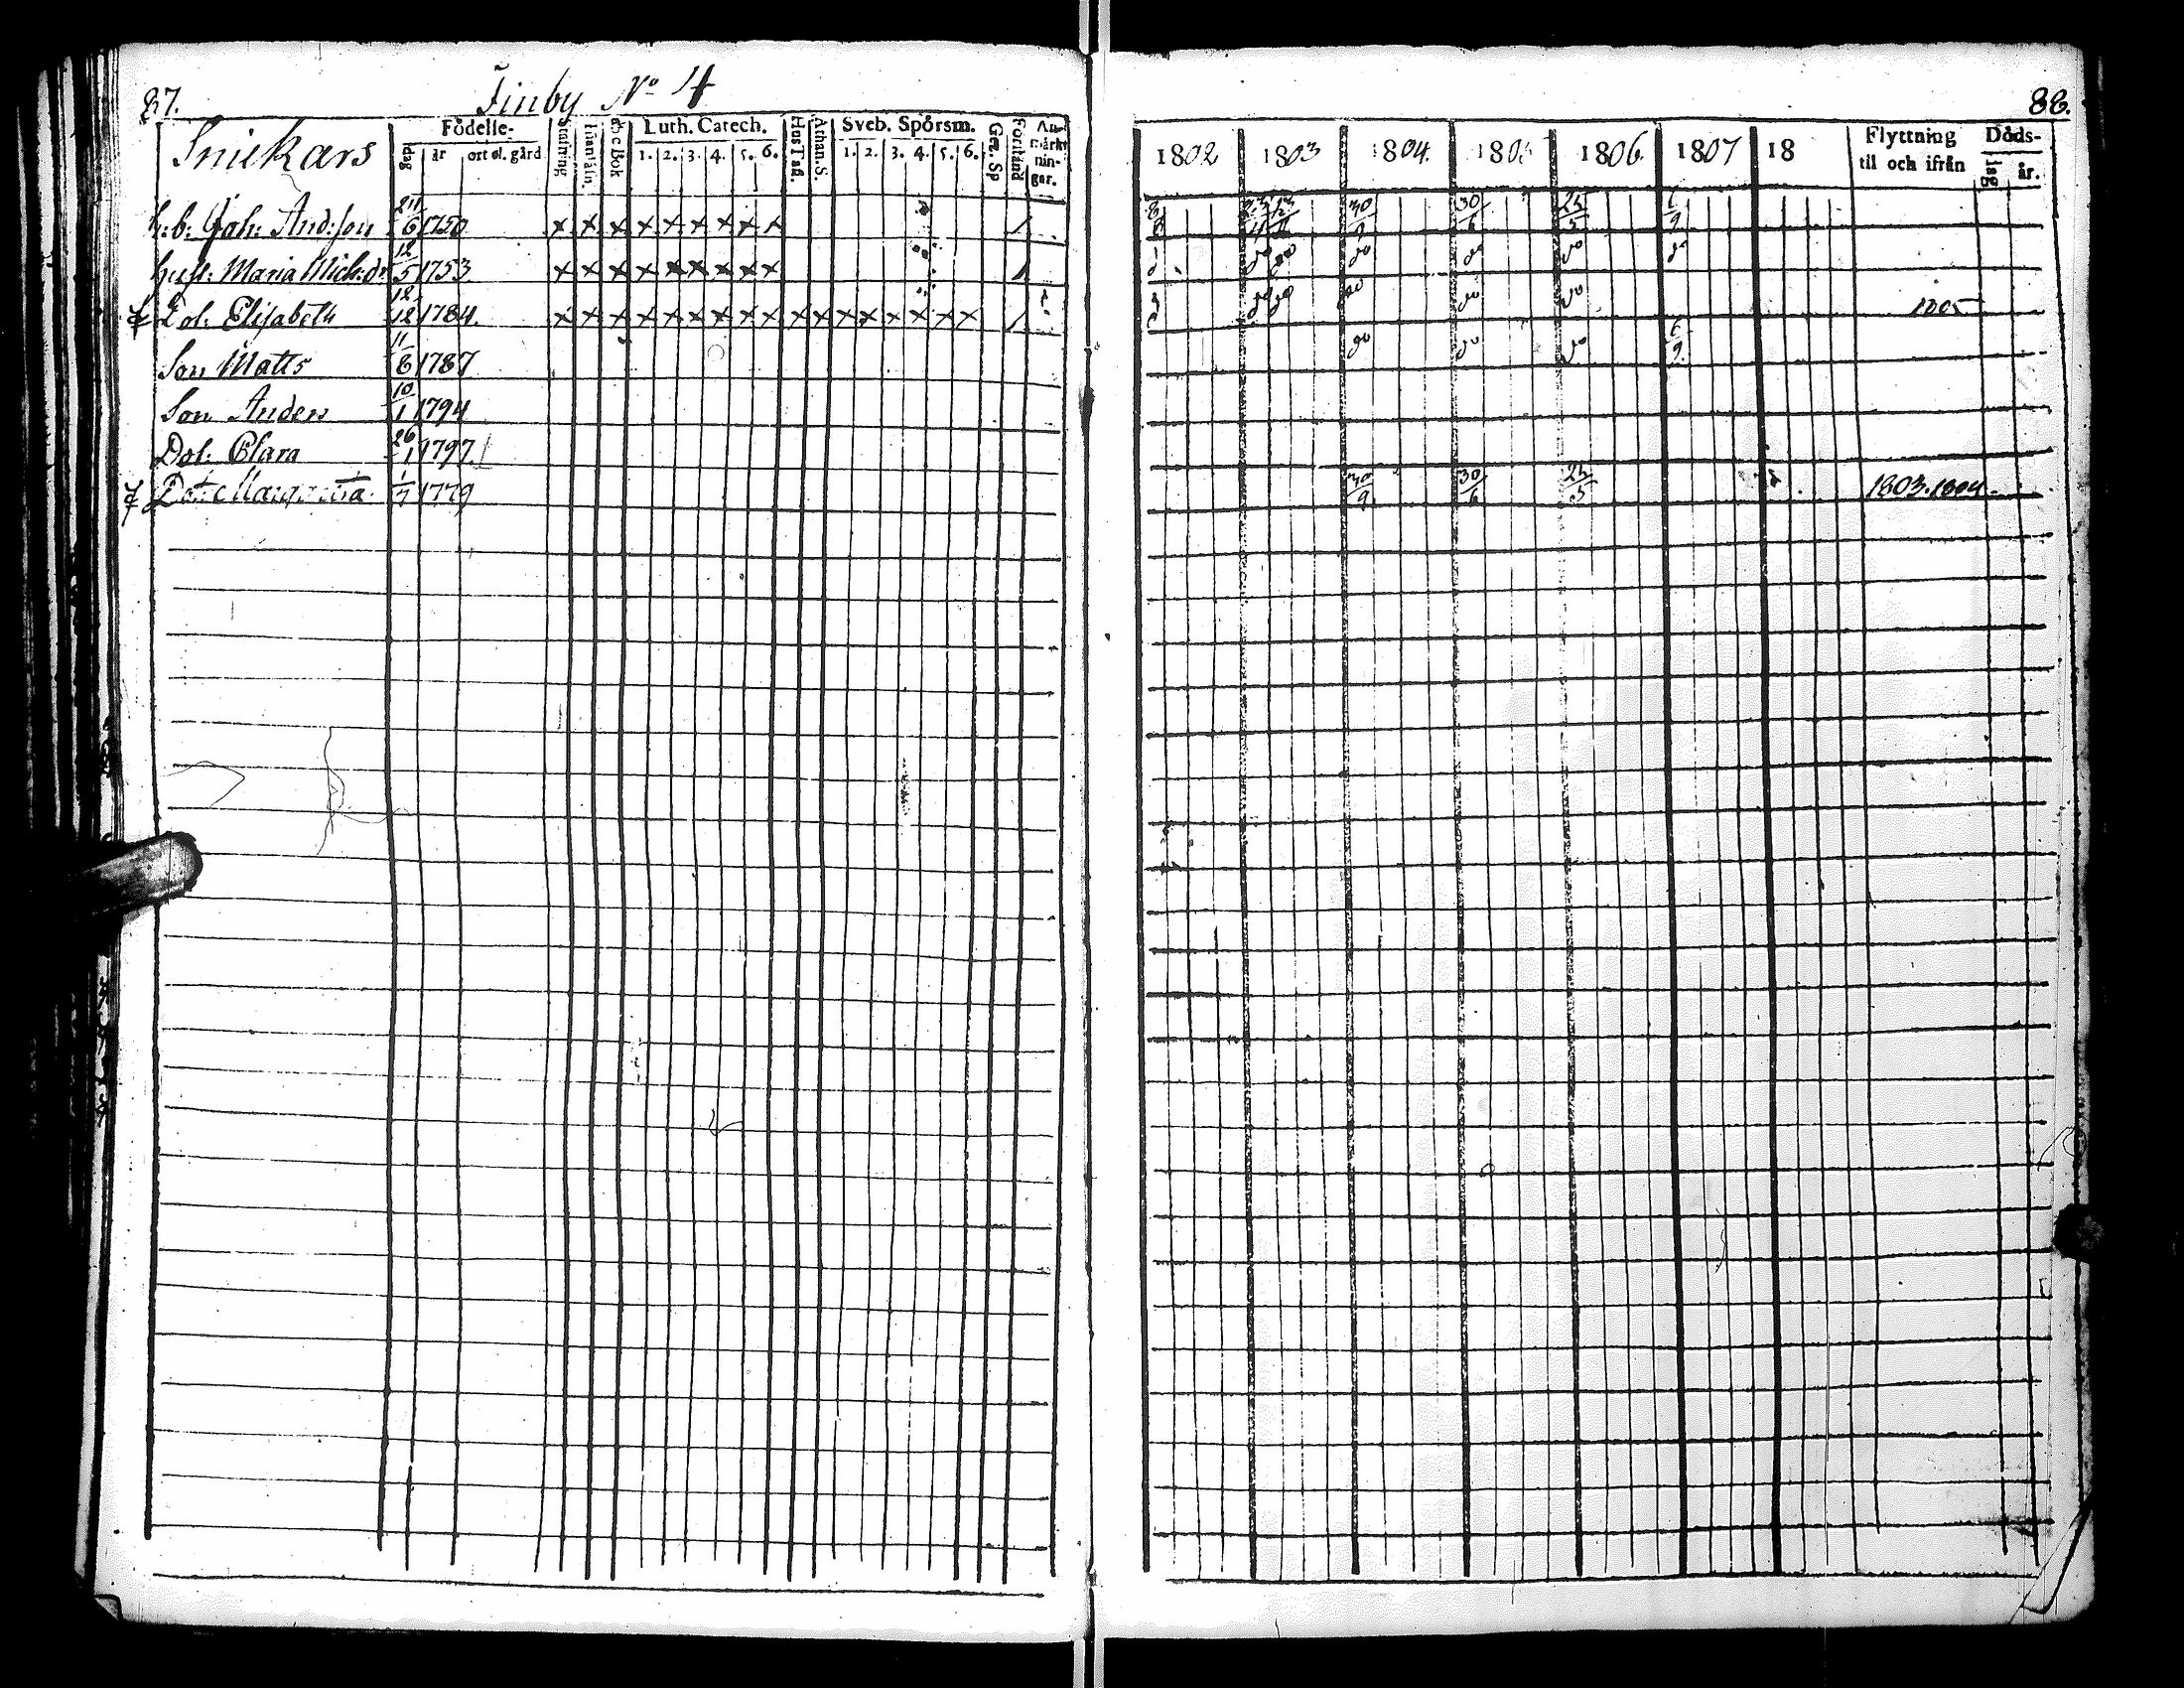 87.
Finby No 4
Snickars
Födelse-
dag
år
ort el. gård
Stafning
Innanläsn.
A b c Bok
Luth. Catech.
1. 2. 3. 4. 5. 6.
Hus Tafl.
Athan. S.
Sveb. Spörsm.
1. 2. 3. 4. 5. 6.
Gez. Sp
Förstånd
An-
märkt
nin-
gar.
h:b: Joh: Andsson 24/6 1750 x x x x x x x x x /
hust: Maria Mich:dr 12/5 1753 x x x x x x x x x /
Dot: Elisabeth 18/12 1784. x x x x x x x x x x x x x x x x x /
Son Matts 11/8 1787
Son Anders 10/1 1794
Dot: Clara 26/1 1797.
Dot: Margareta 1/7 1779
88.
1802 1803 1804. 1805 1806. 1807 18
Flyttning
til och ifrån
Döds-
dag
år.
30/9 30/6 25/5 6/9
do do do do do
do do do do do 1805
do do do 6/9
30/9 30/6 25/5 1803. 1804.